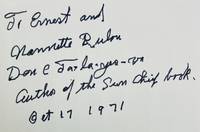 To Ernest and
Nannette Rulon
Don C Talayesva
Author of the Sun Chief book.
Oct 17 1971